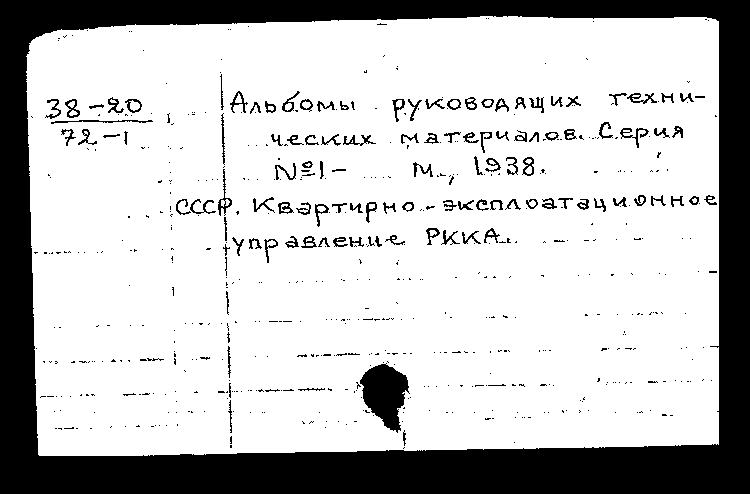 38-20
72-1
Альбомы руководящих техни-
ческих материалов. Серия
№1- М., 1938.
СССР. Квартирно-эксплоатационное
управление РККА.